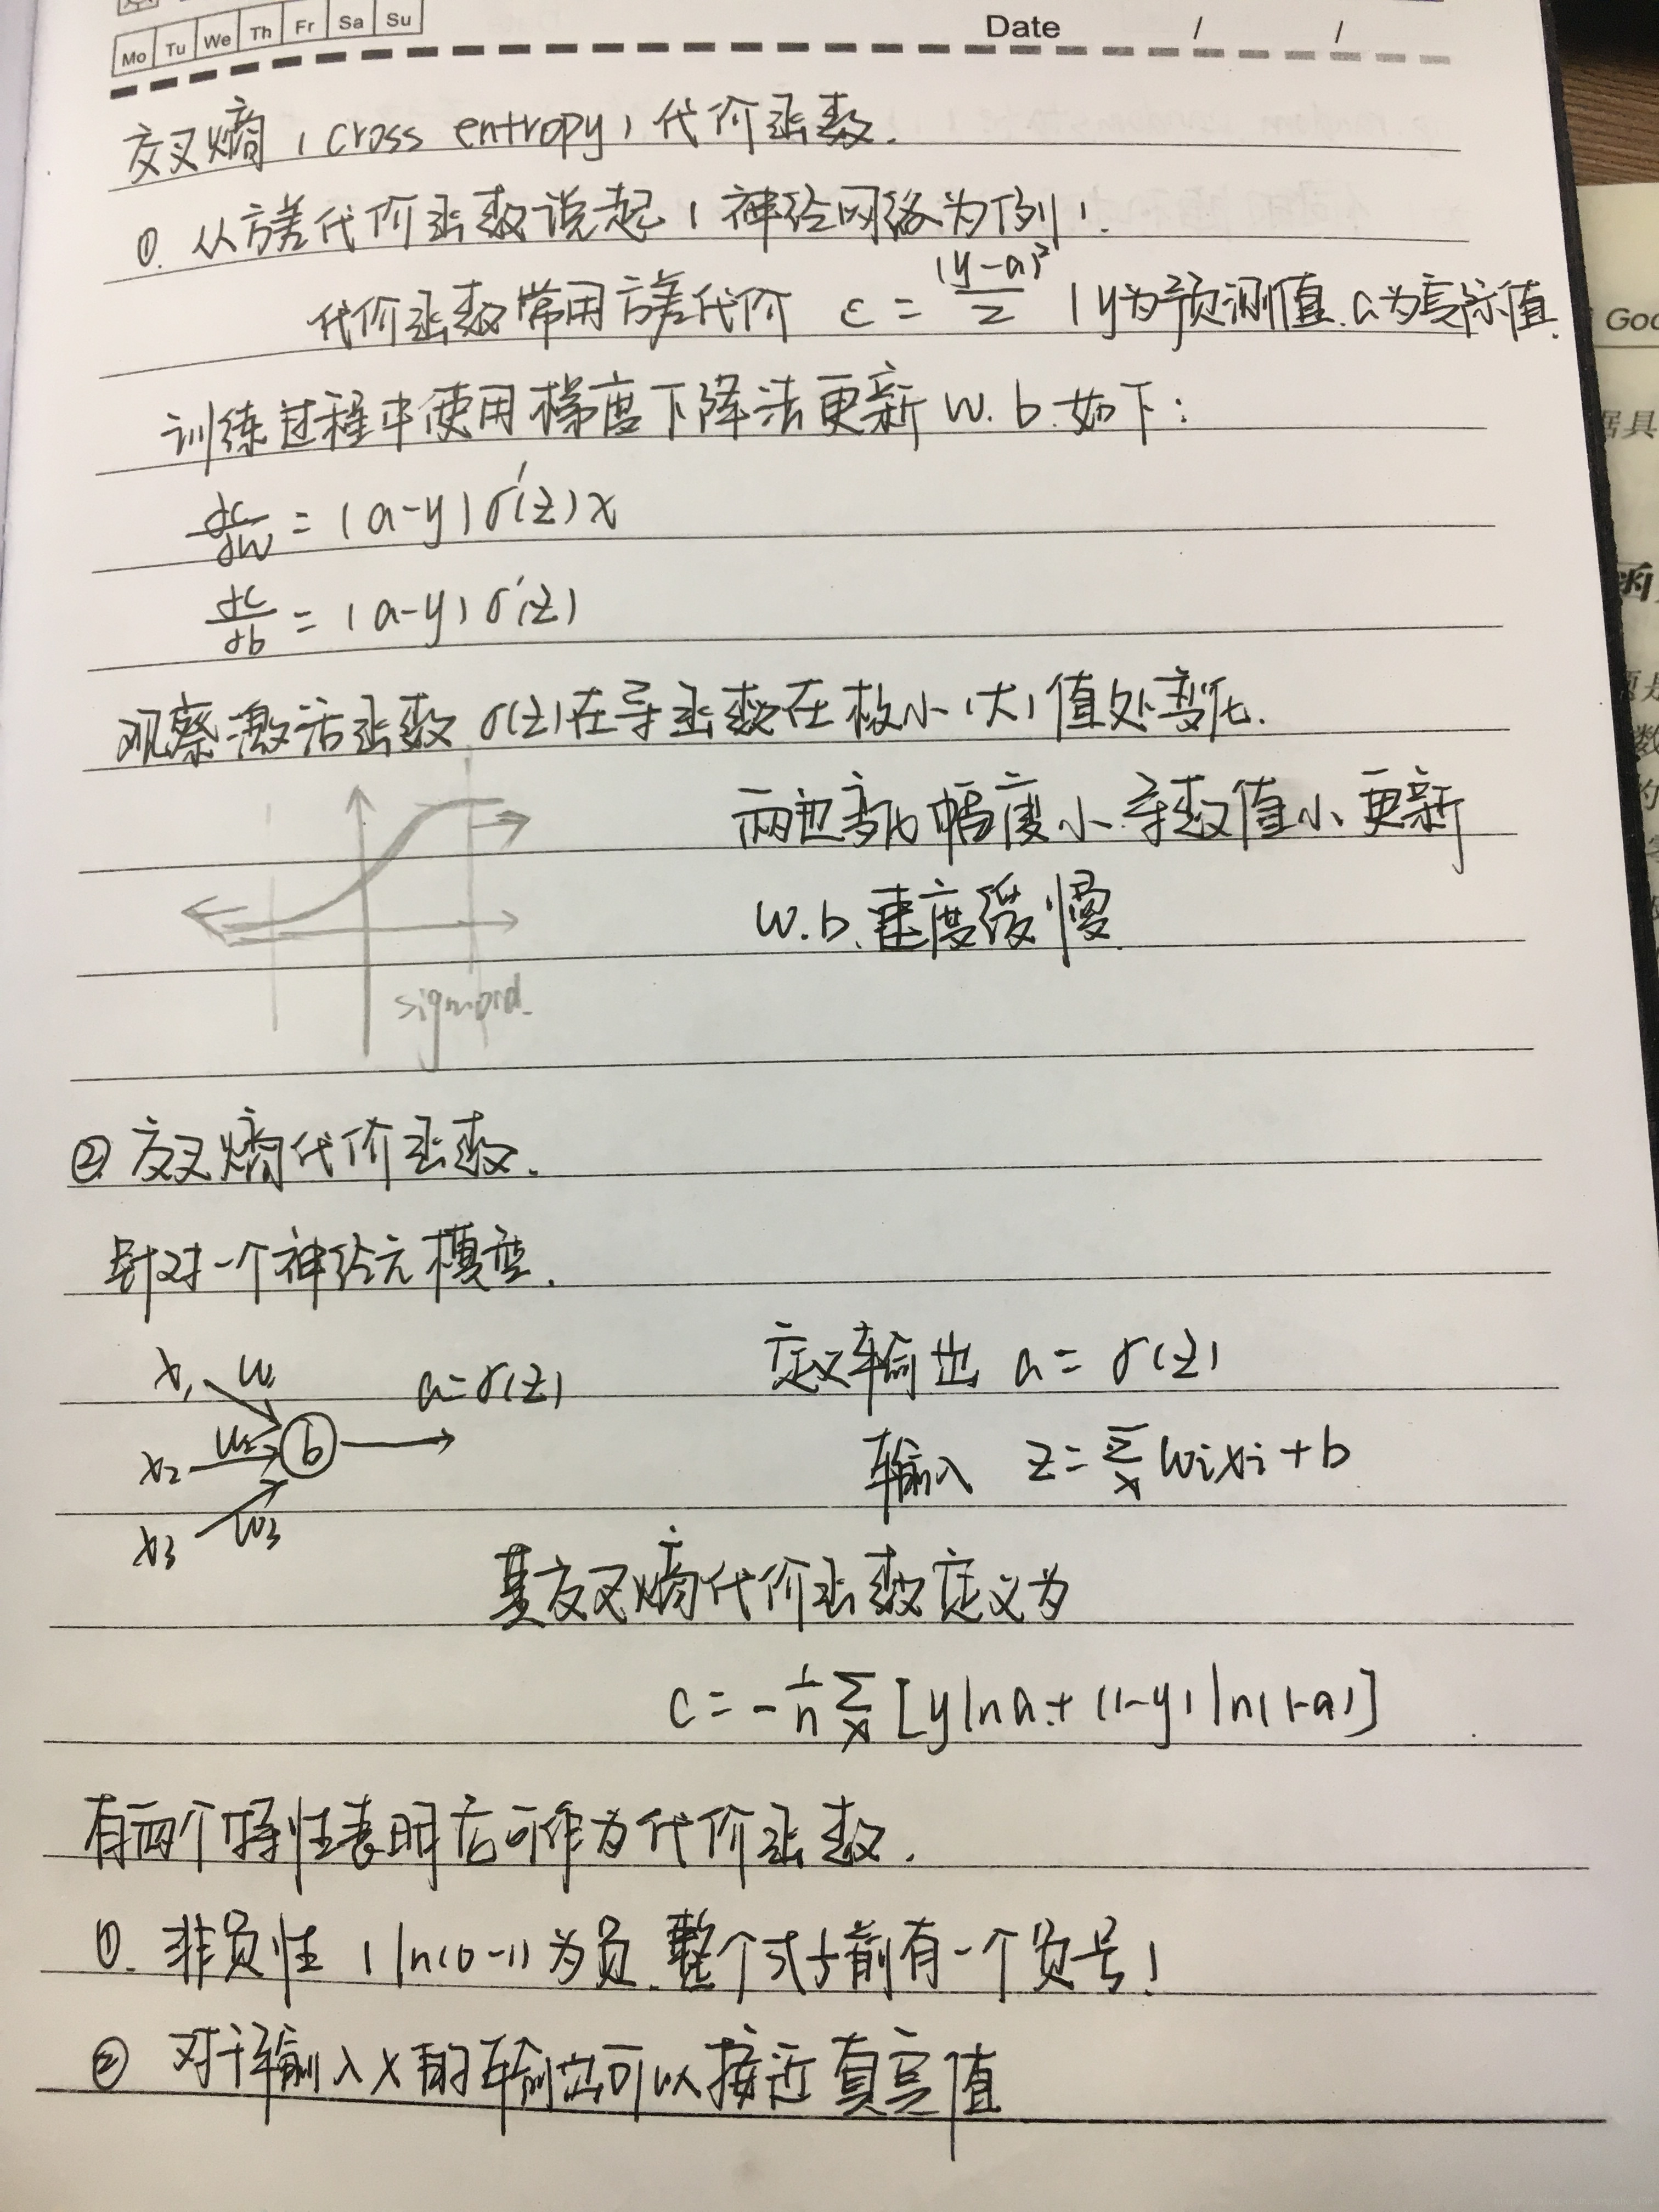 Mo Tu We Th Fr Sa Su
Date / /
交叉熵(cross entropy)代价函数.
①. 从方差代价函数说起(神经网络为例).
代价函数常用方差代价 c = (y-a)²/2 (y为预测值.a为实际值.
训练过程中使用梯度下降法更新 w.b.如下:
dc/dw = (a-y)σ'(z)x
dc/db = (a-y)σ'(z)
观察激活函数 σ(z)在导函数在极小(大)值处变化.
两边变化幅度小.导数值小.更新
w.b.速度缓慢.
sigmoid.
② 交叉熵代价函数.
针对一个神经元模型.
x₁ w₁
x₂ w₂ b a=σ(z)
x₃ w₃
定义输出 a = σ(z)
输入 z = Σₓ wᵢxᵢ + b
其交叉熵代价函数定义为
c = -1/n Σₓ [y ln a + (1-y) ln(1-a)]
有两个特性表明它可作为代价函数.
①. 非负性 (ln(0-1)为负.整个式子前有一个负号)
② 对于输入x的输出可以接近真实值
Goo
据具
函
数